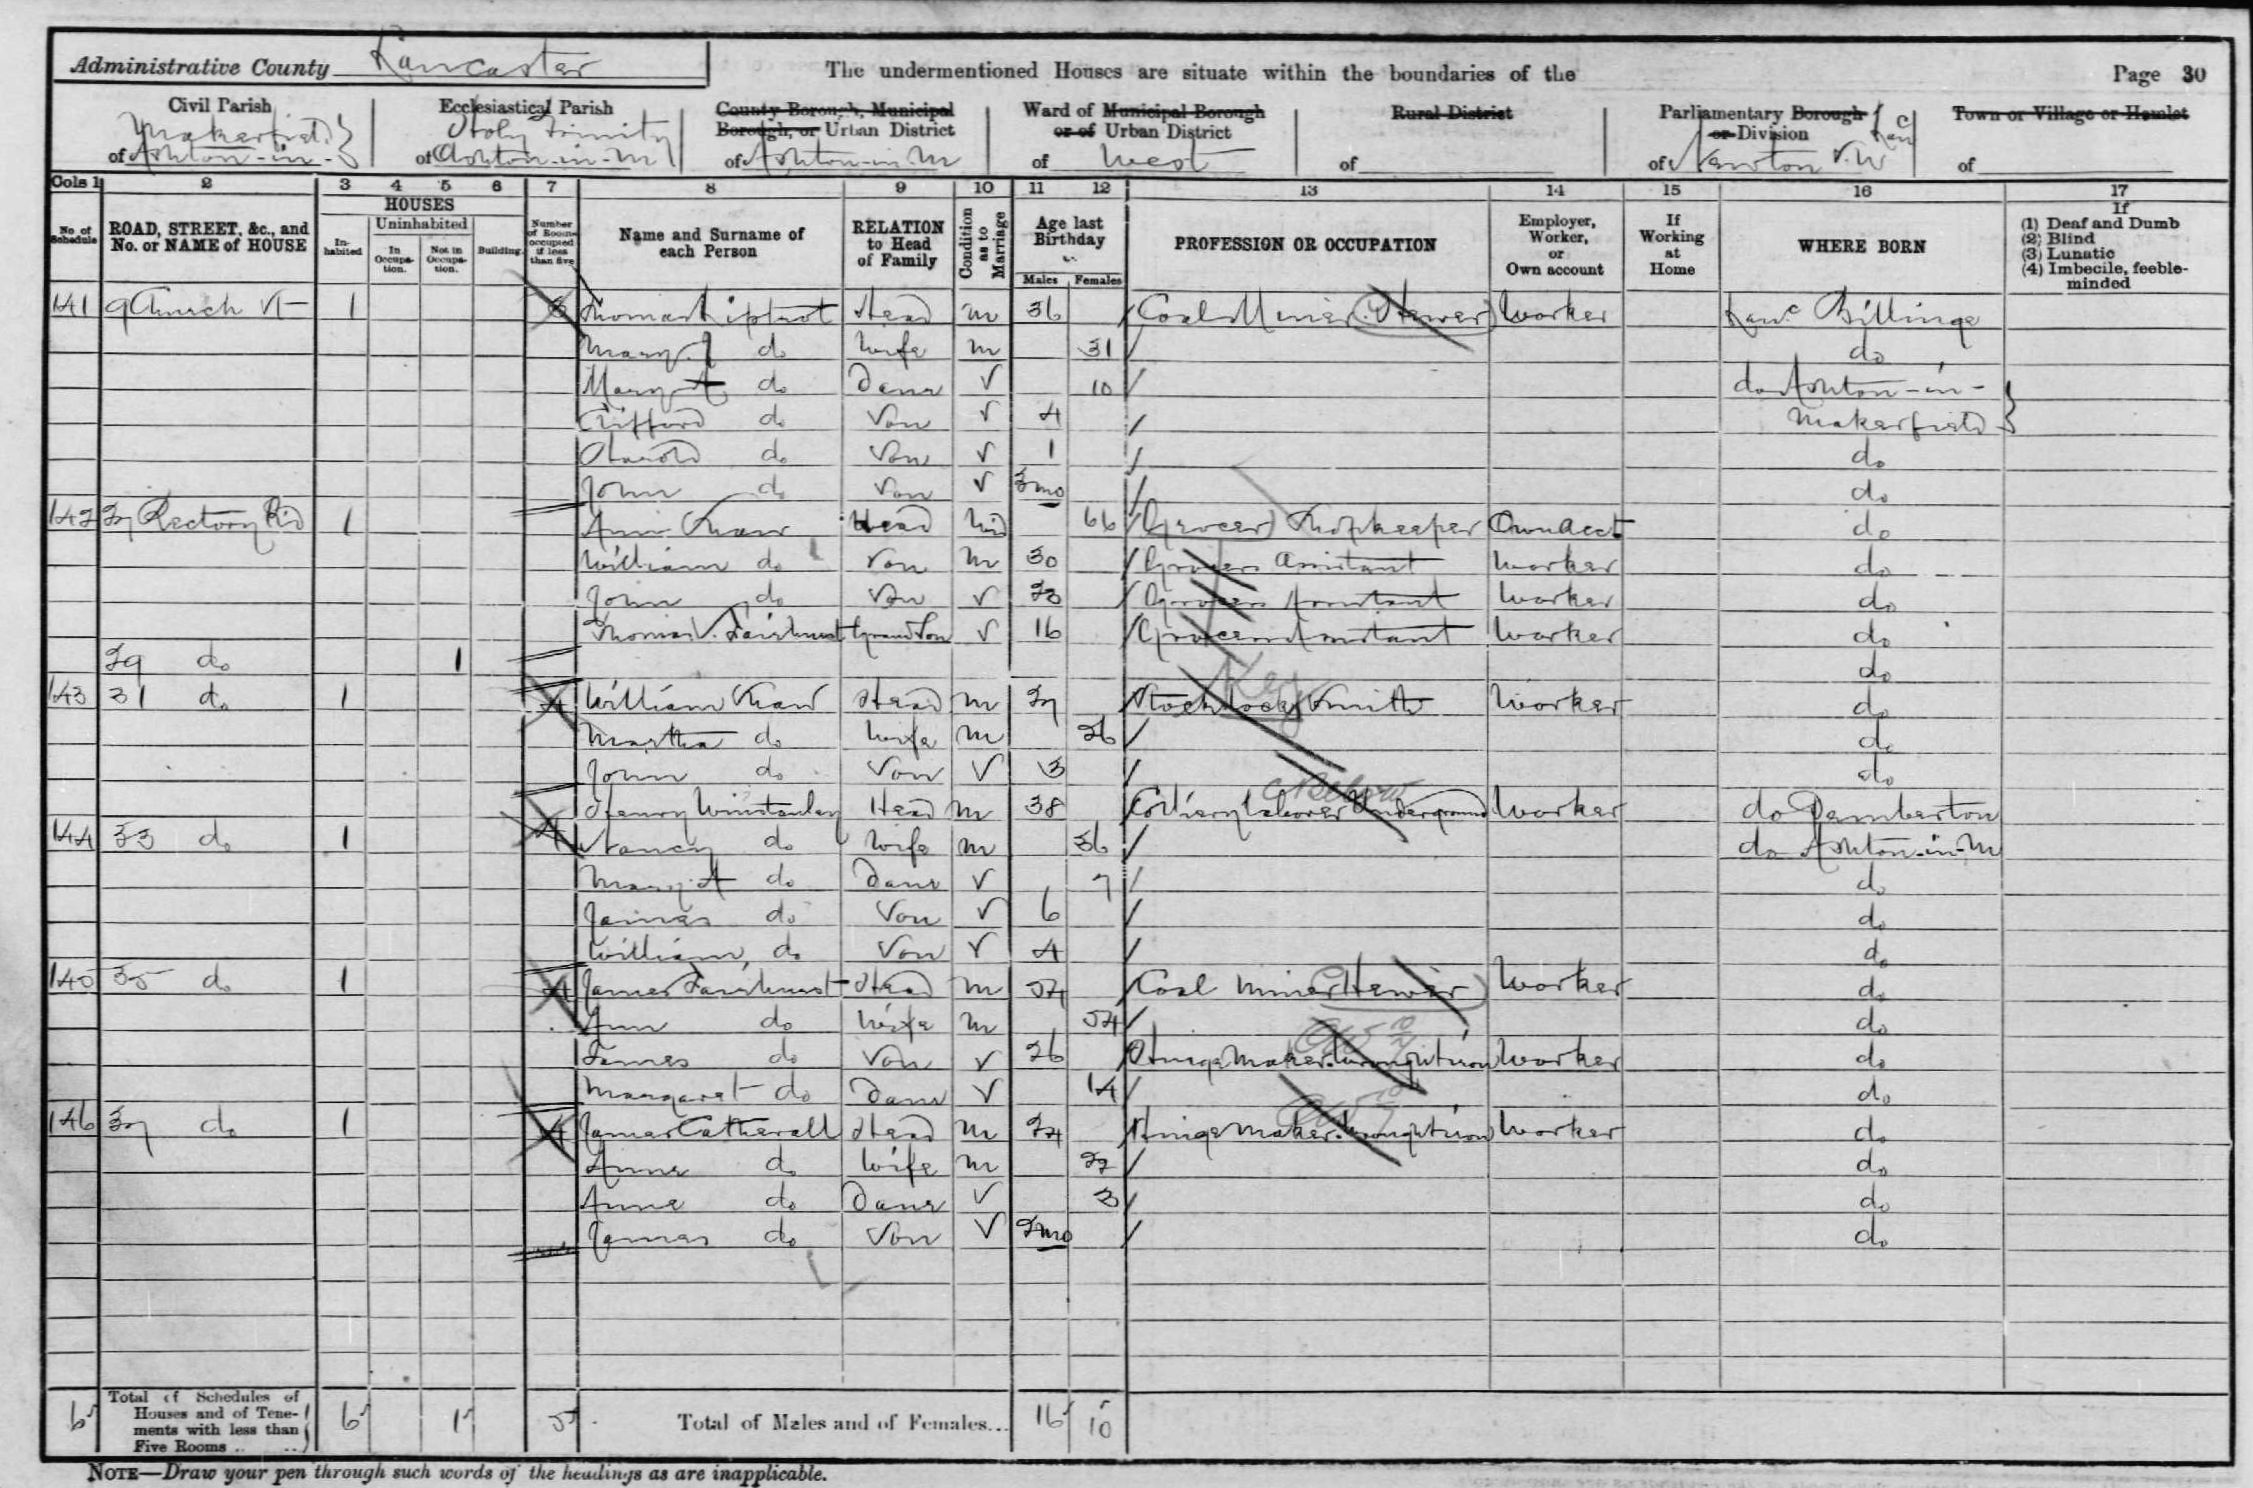 Administrative County Lancaster
The undermentioned Houses are situate within the boundaries of the
Page 30
Civil Parish
of Ashton-in-Makerfield }
Ecclesiastical Parish
Holy Trinity
of Ashton-in-M
County Borough, Municipal
Borough, or Urban District
of Ashton-in-M
Ward of Municipal Borough
or of Urban District
of West
Rural District
of
Parliamentary Borough
or Division
of Newton S.W Lanc
Town or Village or Hamlet
of
Cols 1 2 3 4 5 6 7 8 9 10 11 12 13 14 15 16 17
No. of Schedule
ROAD, STREET, &c., and No. or NAME of HOUSE
HOUSES
Inhabited
Uninhabited
In Occupation.
Not in Occupation.
Building
Number of Rooms occupied if less than five
Name and Surname of each Person
RELATION to Head of Family
Condition as to Marriage
Age last Birthday
Males Females
PROFESSION OR OCCUPATION
Employer, Worker, or Own account
If Working at Home
WHERE BORN
If
(1) Deaf and Dumb
(2) Blind
(3) Lunatic
(4) Imbecile, feeble-minded
141 9 Church St 1 3 Thomas Liptrot Head M 36 Coal Miner (Hewer) Worker Lanc Billinge
Mary J do Wife M 31 do
Mary A do Daur S 10 do Ashton-in-
Clifford do Son S 4 Makerfield }
Harold do Son S 1 do
John do Son S 3mo do
142 27 Rectory Rd 1 Ann Shaw Head Wid 66 (Grocer) Shopkeeper Own acct do
William do Son M 30 Grocers Assistant Worker do
John do Son S 23 Grocers Assistant Worker do
Thomas S. Fairhurst Grand Son S 16 Grocers Assistant Worker do
29 do 1 do
143 31 do 1 4 William Shaw Head M 27 Stock Lock Smith Worker do
Key
Martha do Wife M 26 do
John do Son S 3 do
Henry Winstanley Head M 38 Colliery Laborer Underground Worker do Pemberton
144 33 do 1 4 Nancy do Wife M 36 do Ashton-in-M
Mary A do Daur S 7 do
James do Son S 6 do
William do Son S 4 do
145 35 do 1 4 James Fairhurst Head M 54 Coal Miner (Hewer) Worker do
Ann do Wife M 54 do
James do Son S 26 Hinge Maker Wrought iron Worker do
Margaret do Daur S 14 do
146 37 do 1 4 James Catherall Head M 24 Hinge Maker Wrought iron Worker do
Anne do Wife M 22 do
Anne do Daur S 3 do
James do Son S 2mo do
6 Total of Schedules of Houses and of Tenements with less than Five Rooms .. .. 6 1 5 Total of Males and of Females... 16 10
NOTE—Draw your pen through such words of the headings as are inapplicable.